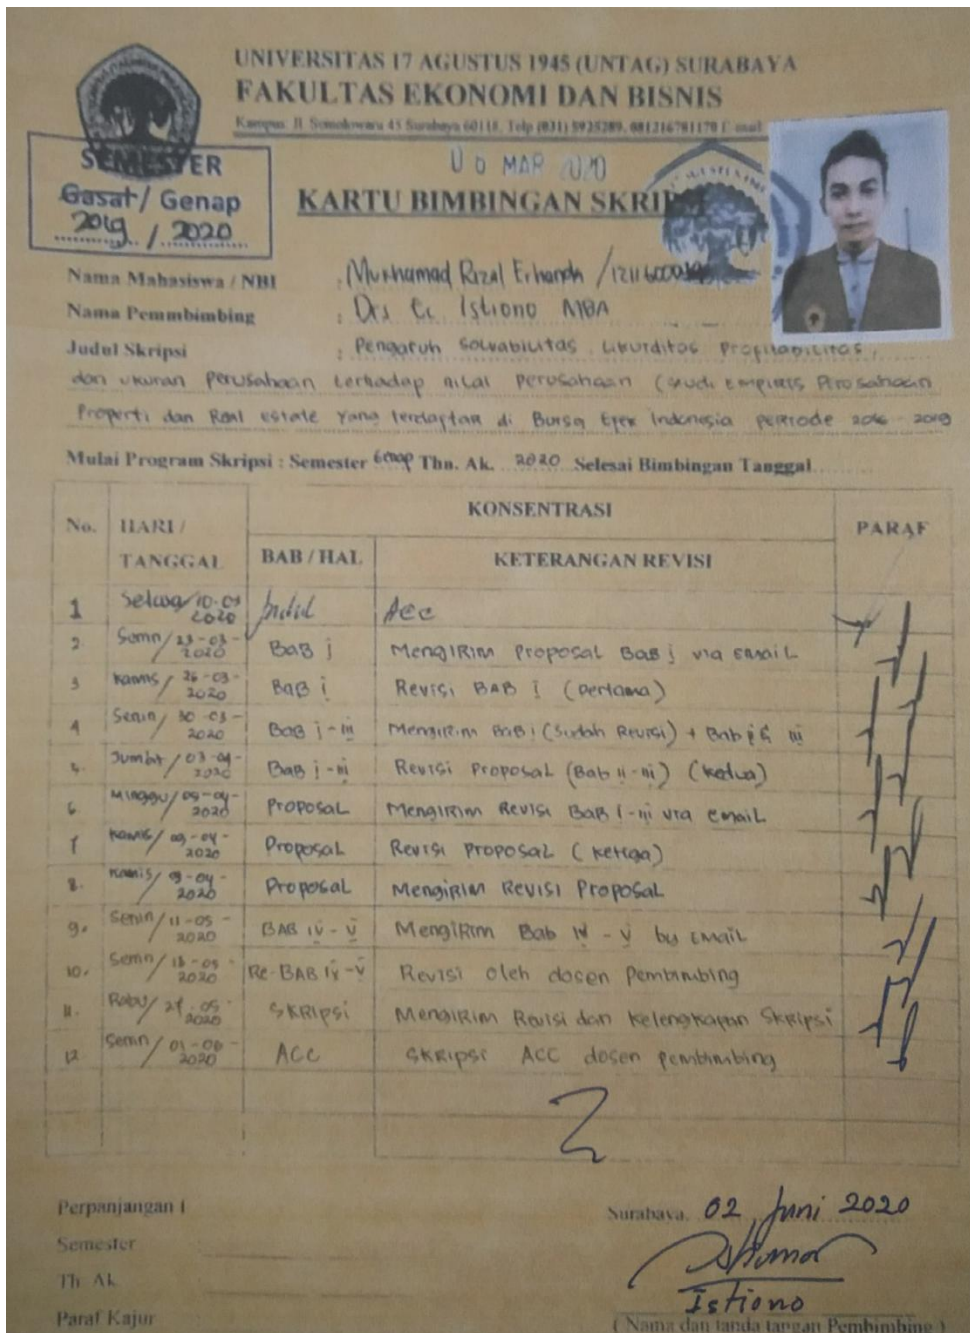 UNIVERSITAS 17 AGUSTUS 1945 (UNTAG) SURABAYA
FAKULTAS EKONOMI DAN BISNIS
Kampus: Jl. Semolowaru 45 Surabaya 60118, Telp (031) 5925289, 081216781170 E-mail
SEMESTER
Gasal / Genap
2019 / 2020
06 MAR 2020
KARTU BIMBINGAN SKRIPSI
Nama Mahasiswa / NBI : Mukhamad Rizal
Nama Pemmbimbing : Drs Ec Istiono MBA
Judul Skripsi : Pengaruh Solvabilitas, Likuiditas Profitabilitas,
dan ukuran Perusahaan terhadap nilai Perusahaan (Studi Empiris Perusahaan
Properti dan Real estate yang terdaftar di Bursa Efek Indonesia periode 2016 - 2019
Mulai Program Skripsi : Semester Genap Thn. Ak. 2020 Selesai Bimbingan Tanggal
No. HARI / TANGGAL KONSENTRASI PARAF
BAB / HAL KETERANGAN REVISI
1 Selasa/10-03 2020 Judul Acc
2 Senin/23-03-2020 BaB i Mengirim Proposal BaB i via Email
3 Kamis/26-03-2020 BaB i Revisi BAB i (Pertama)
4 Senin/30-03-2020 Bab i-iii Mengirim BaB i (Sudah Revisi) + Bab ii & iii
Jumat/03-04-2020 Bab i-iii Revisi Proposal (Bab ii-iii) (kedua)
6 Minggu/05-04-2020 Proposal Mengirim Revisi BaB i-iii via email
7 Kamis/09-04-2020 Proposal Revisi Proposal (ketiga)
8. Kamis/9-04-2020 Proposal Mengirim Revisi Proposal
9. Senin/11-05-2020 BAB iv - v Mengirim Bab iv - v by Email
10. Senin/18-05-2020 Re-BAB iv-v Revisi oleh dosen Pembimbing
11. Rabu/27-05-2020 Skripsi Mengirim Revisi dan Kelengkapan Skripsi
12 Senin/01-06-2020 ACC Skripsi ACC dosen pembimbing
Perpanjangan I
Semester
Th. Ak.
Paraf Kajur
Surabaya, 02 Juni 2020
Istiono
( Nama dan tanda tangan Pembimbing )